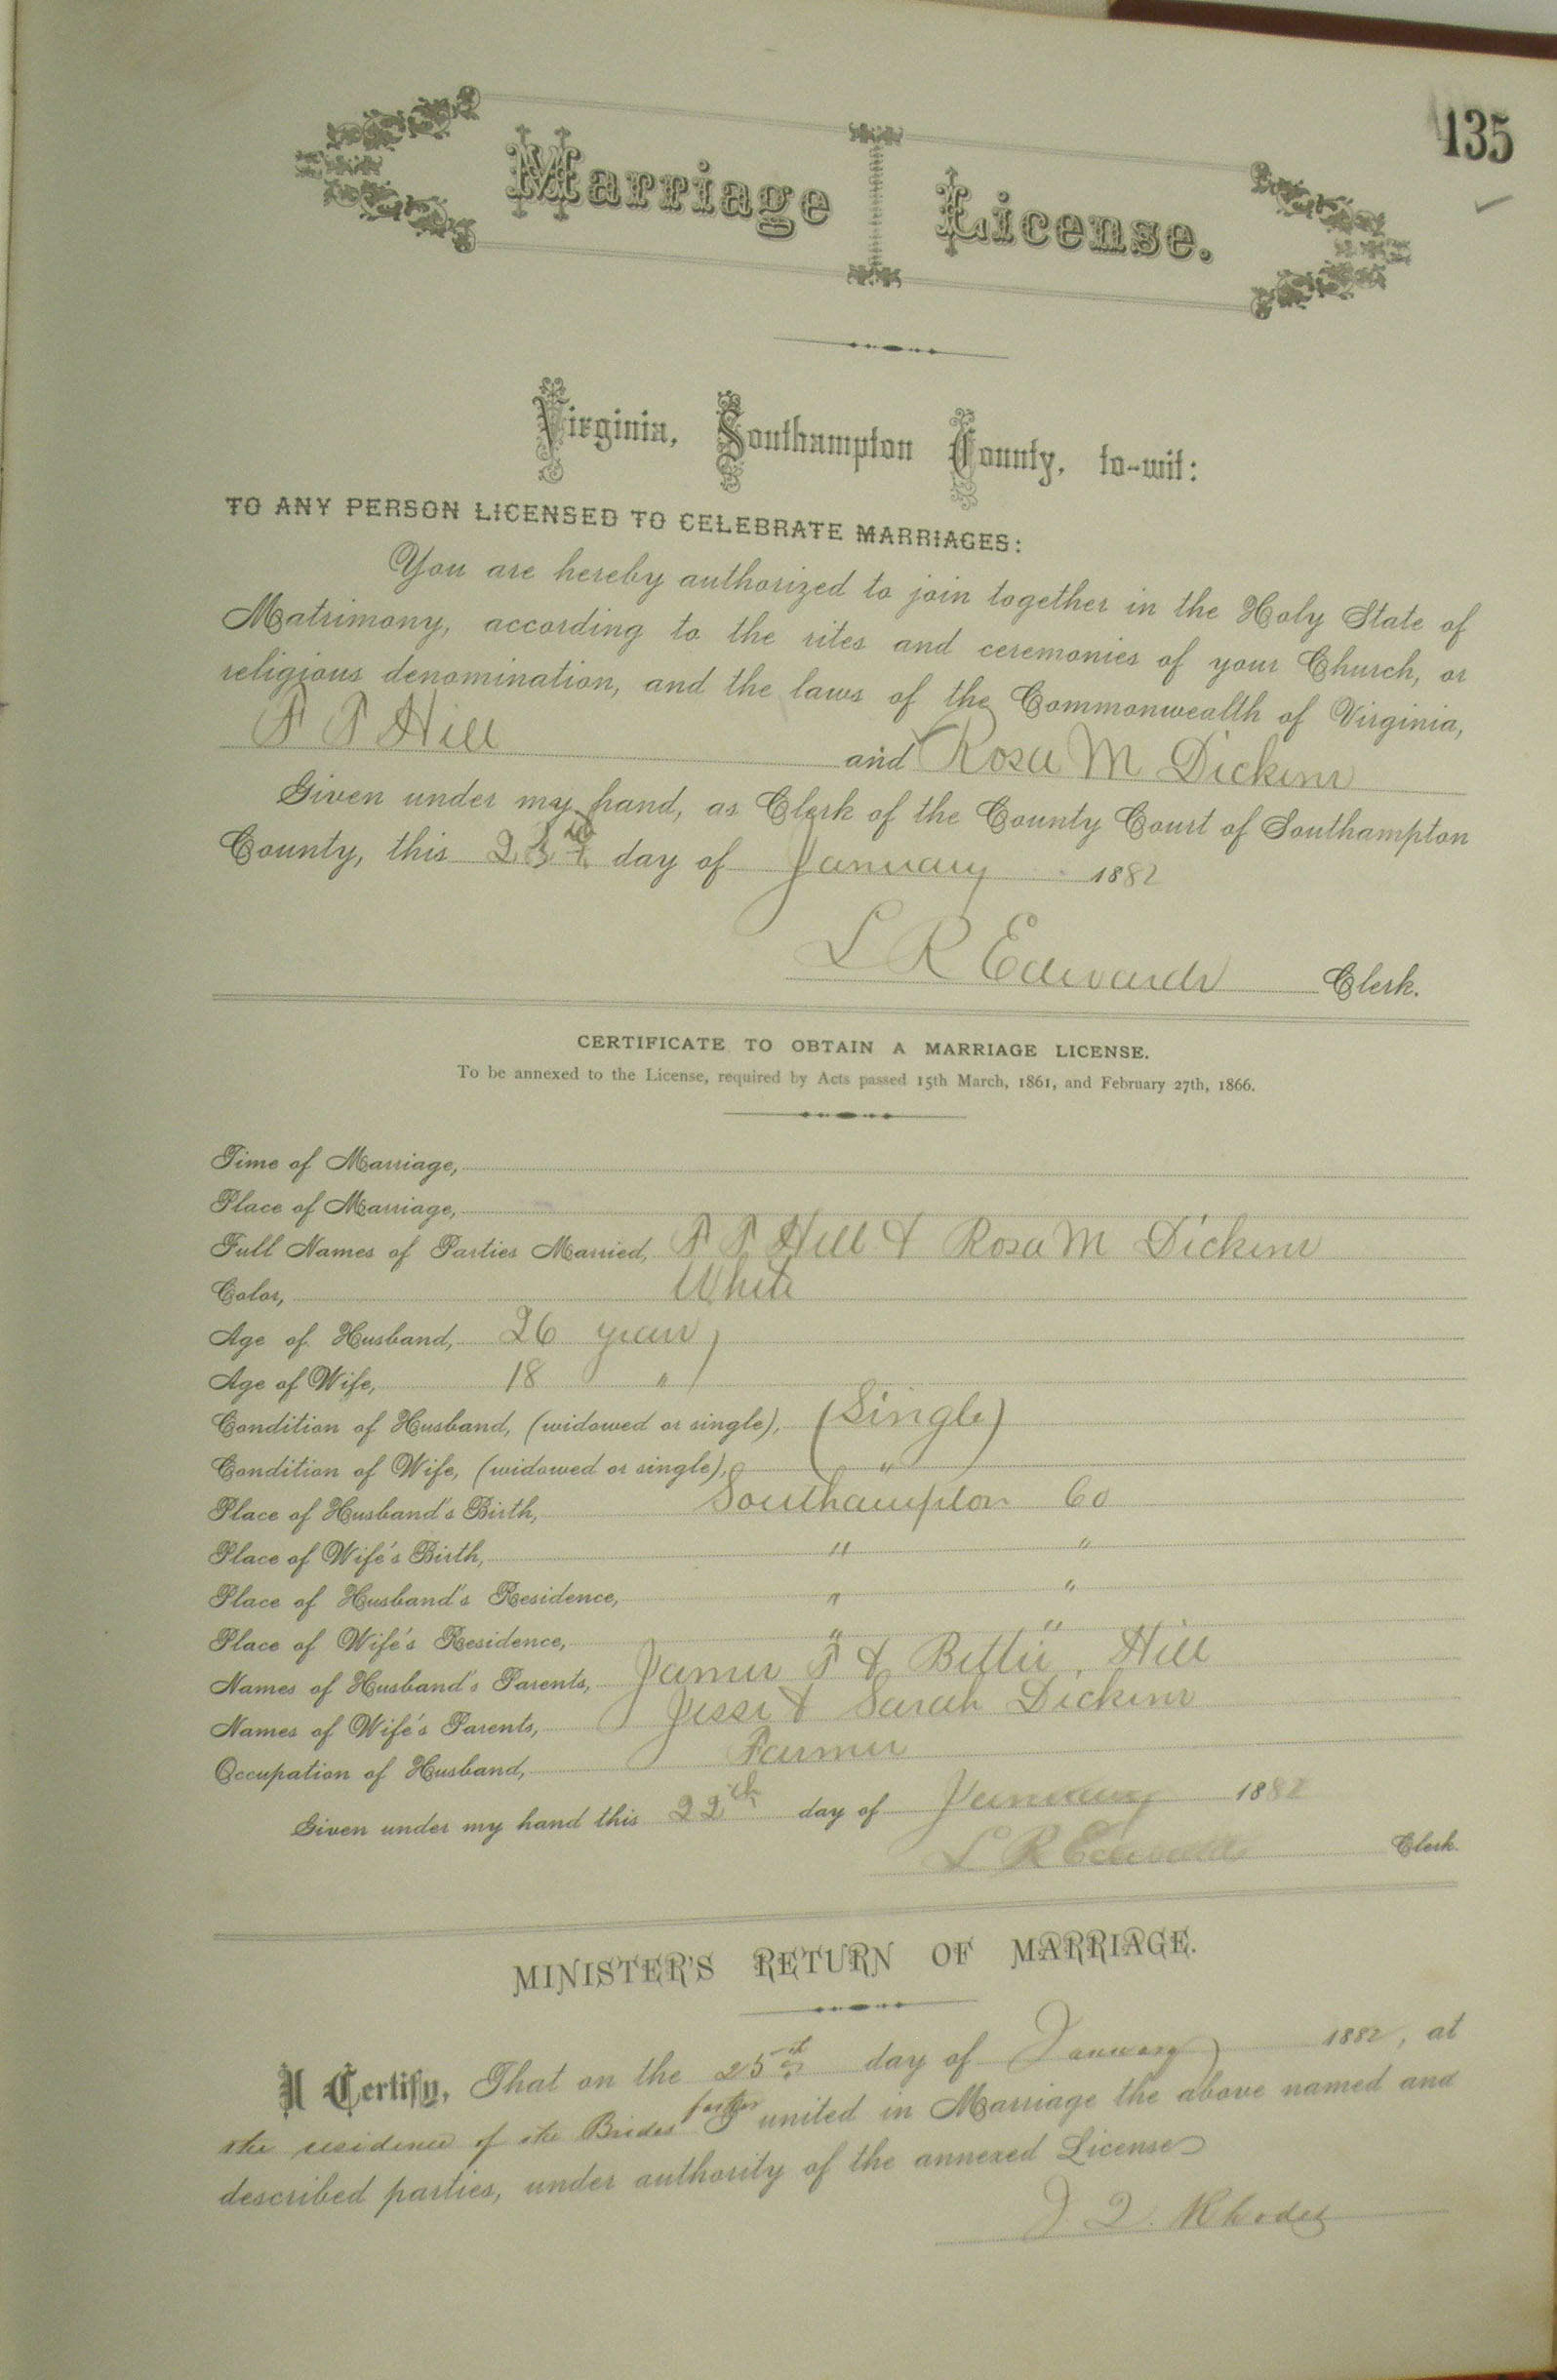 135
Marriage License.
Virginia, Southampton County, to-wit:
TO ANY PERSON LICENSED TO CELEBRATE MARRIAGES:
You are hereby authorized to join together in the Holy State of
Matrimony, according to the rites and ceremonies of your Church, or
religious denomination, and the laws of the Commonwealth of Virginia,
Hill and Rosa M Dickins
Given under my hand, as Clerk of the County Court of Southampton
County, this day of January 1882
L R Edwards Clerk.
CERTIFICATE TO OBTAIN A MARRIAGE LICENSE.
To be annexed to the License, required by Acts passed 15th March, 1861, and February 27th, 1866.
Time of Marriage,
Place of Marriage,
Full Names of Parties Married, Hill & Rosa M Dickins
Color, White
Age of Husband, 26 years
Age of Wife, 18 "
Condition of Husband, (widowed or single), (Single)
Condition of Wife, (widowed or single), "
Place of Husband's Birth, Southampton Co
Place of Wife's Birth, " "
Place of Husband's Residence, " "
Place of Wife's Residence, " "
Names of Husband's Parents, James & Bettie Hill
Names of Wife's Parents, Jesse & Sarah Dickins
Occupation of Husband, Farmer
Given under my hand this 22th day of January 1882
L R Edwards Clerk.
MINISTER'S RETURN OF MARRIAGE.
I Certify, That on the 25th day of January 1882, at
the residence of the Brides father I united in Marriage the above named and
described parties, under authority of the annexed License
J. Q. Rhodes